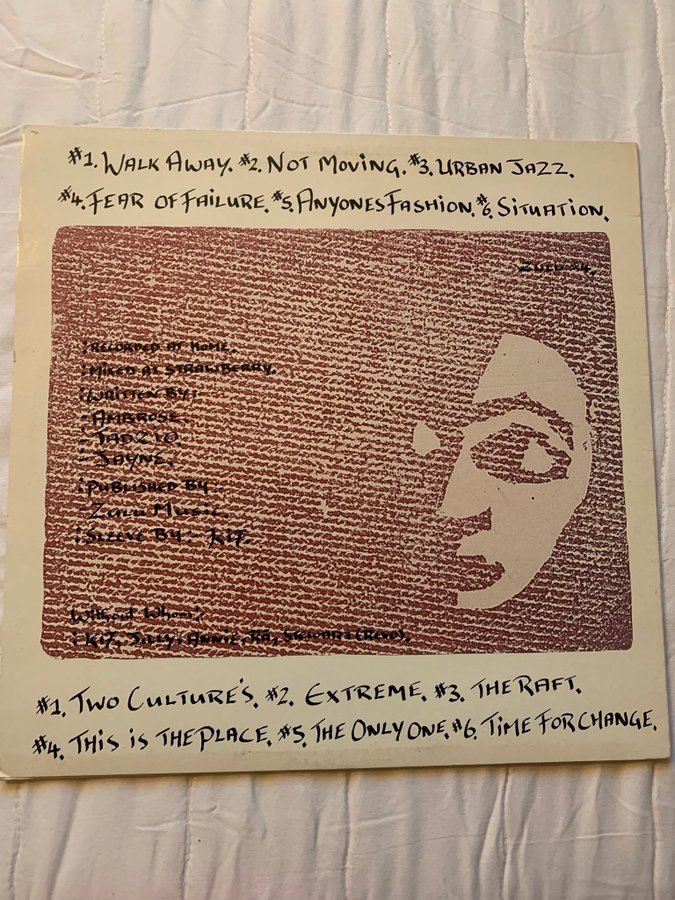 #1. WALK AWAY. #2. NOT MOVING. #3. URBAN JAZZ.
#4. FEAR OF FAILURE. #5. ANYONES FASHION. #6. SITUATION.
ZULU #4.
:RECORDED AT HOME.
:MIXED AT STRAWBERRY.
:WRITTEN BY:-
- AMBROSE.
- TADZIO.
- JAYNE.
:PUBLISHED BY:-
- ZULU MUSIC.
:SLEEVE BY:- KIF.
Without Whom:-
:KIF, JILLY, ANNIE, RA, STEWART (REVO).
#1. TWO CULTURE'S. #2. EXTREME. #3. THE RAFT.
#4. THIS IS THE PLACE. #5. THE ONLY ONE. #6. TIME FOR CHANGE.